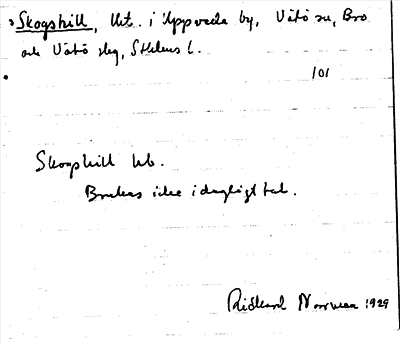 Skogshill, lht. i Uppveda by, Vätö sn, Bro
och Vätö skg, Sthlms l.
101
Skogshill lht.
Brukas icke i dagligt tal.
Rickard Norman 1929